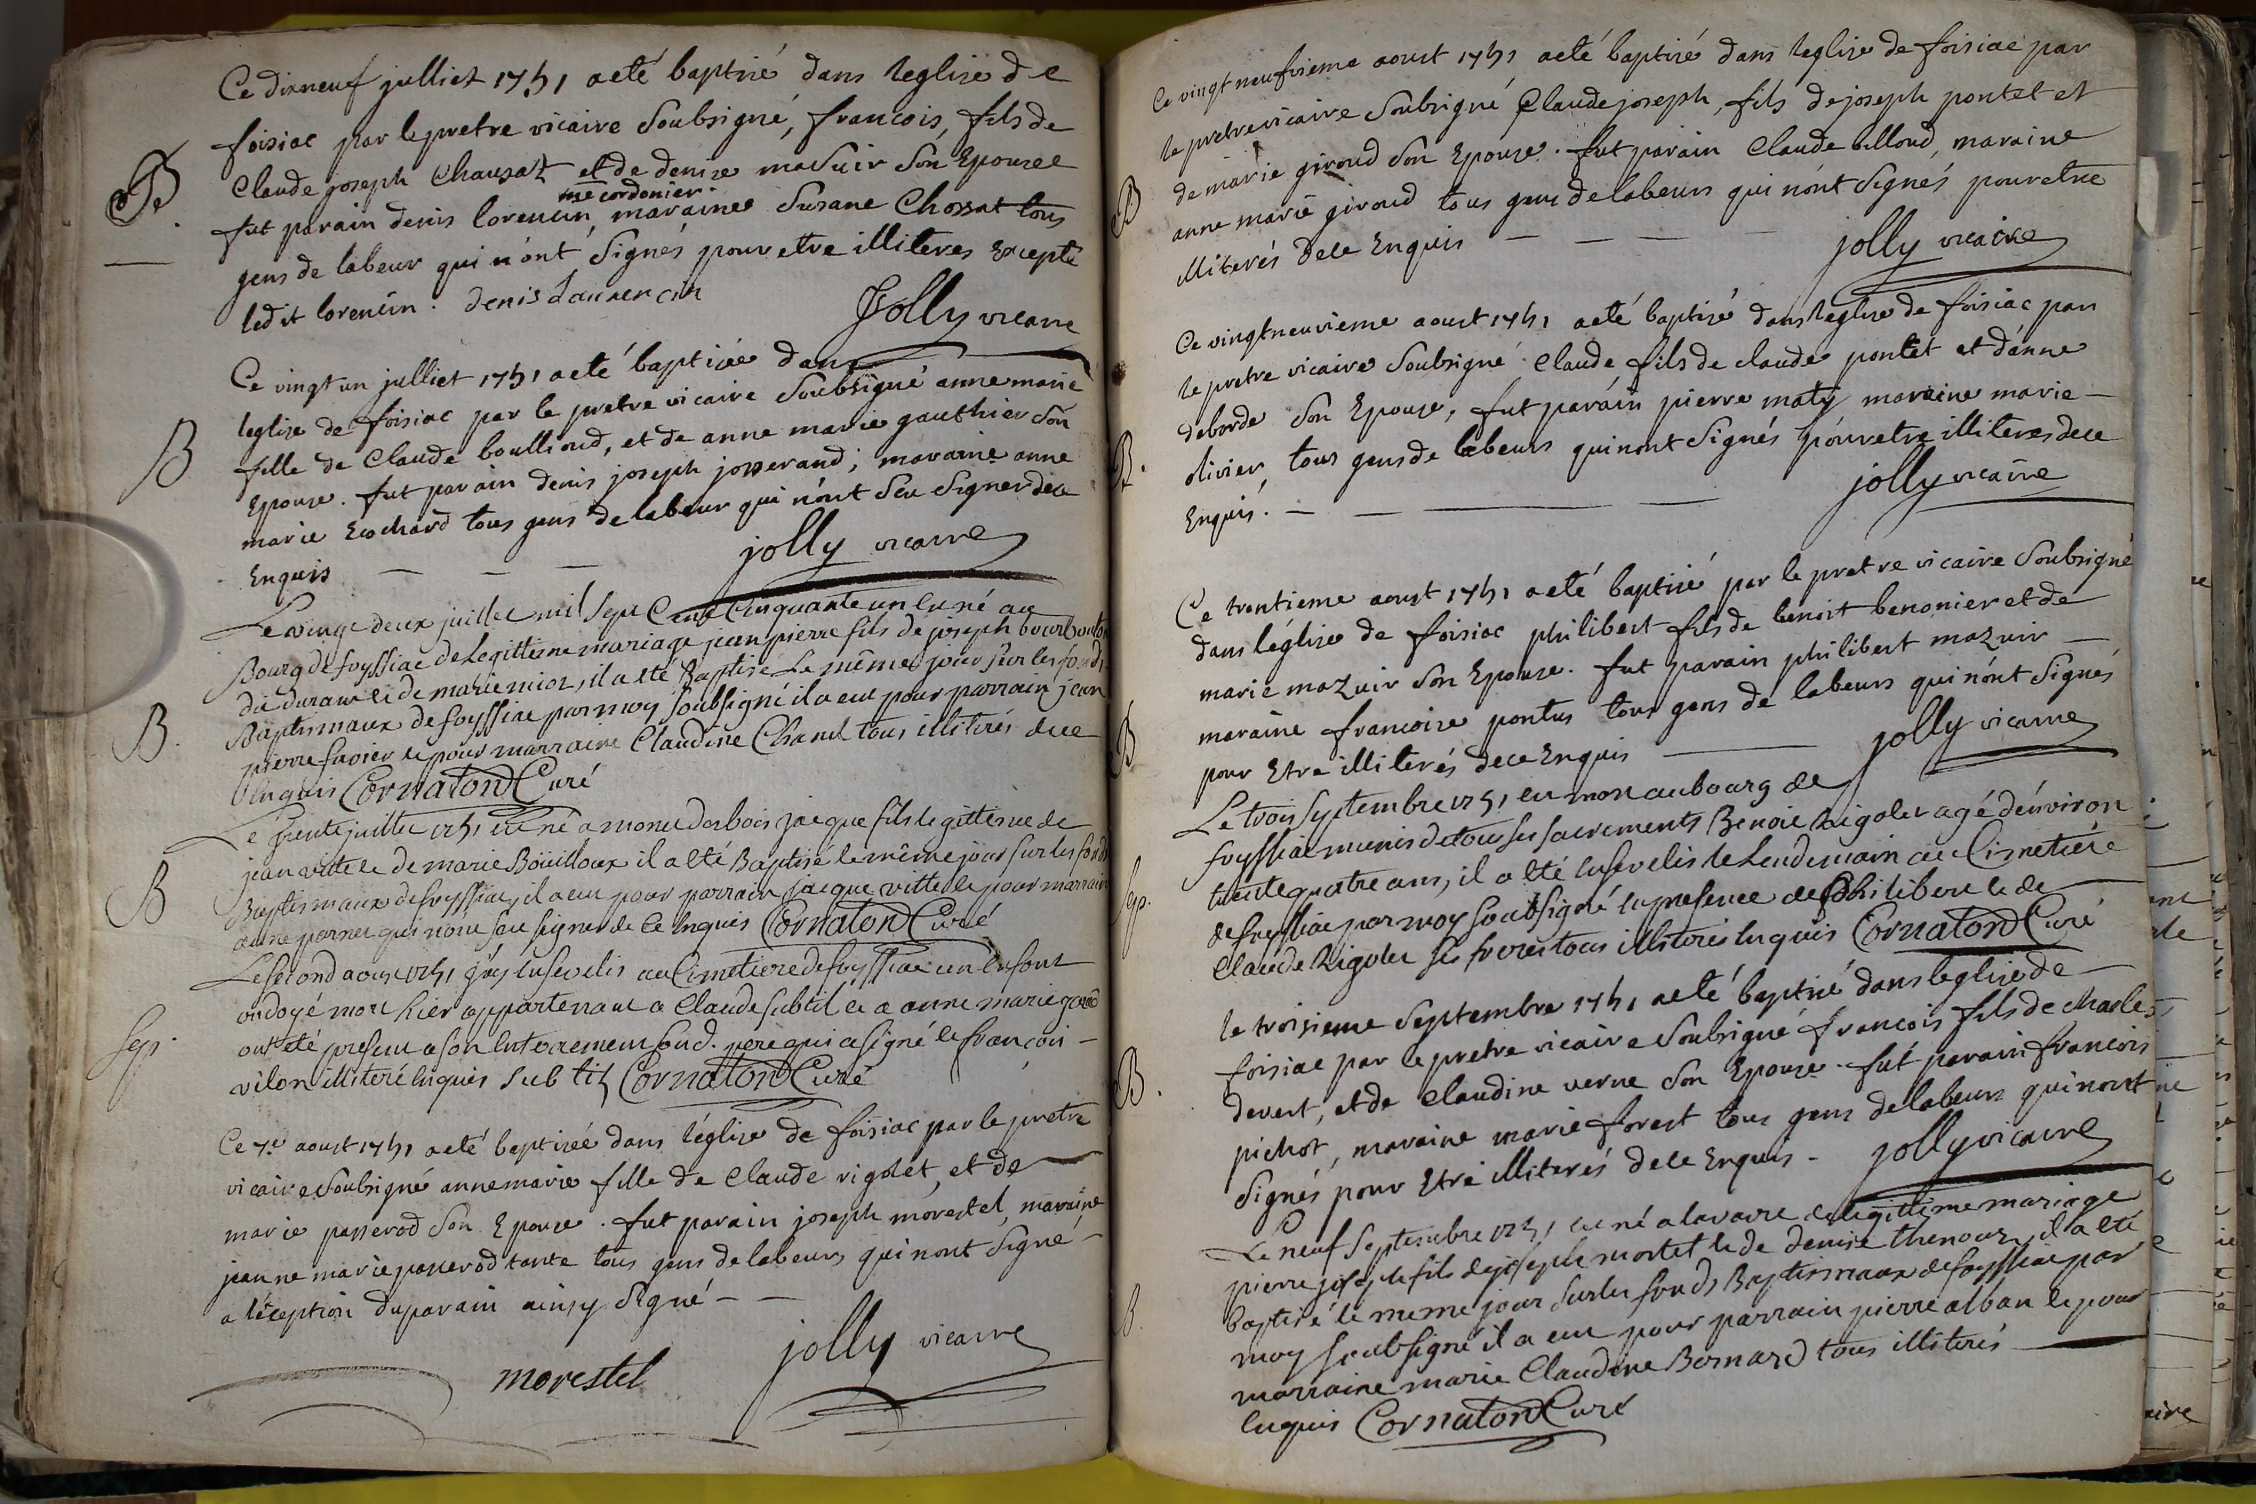 Ce dixneuf julliet 1751 a eté baptisé dans leglise de
foisiac par le pretre vicaire Soubsigné, francois, fils de
Claude joseph Chausat et de denise masuir Son Epouse
me cordonier
fut parain denis lorencin, maraine Susane Chossat tous
gens de labeur qui n'ont Signés pour etre illiteres Excepté
ledit lorencin. denis Laurencin
Jolly vicaire
B
Ce vingt un julliet 1751 a eté baptisée dans
leglise de foisiac par le pretre vicaire Soubsigné anne marie
fille de Claude boullioud, et de anne marie gauthier Son
Epouse. fut parain denis joseph josserand, maraine anne
marie Ecochard tous gens de labeur qui n'ont Sçu Signer dece
Enquis
jolly vicaire
B
Le vingt deux juillet mil Sept Cent Cinquante un est né au
Bourg de foyssiac de Legittime mariage jean pierre fils de joseph bourbouton
dit duraut et de marie nior, il a eté Baptisé Le même jour sur les fonds
Baptismaux de foyssiac par moy Soubsigné il a eut pour parrain jean
pierre favier et pour marraine Claudine Chanel tous illiterés de ce
Enquis Cornaton Curé
B.
Le trente juillet 1751 est né a monet Dasbois jacque fils legittisme de
jean vitte et de marie Boüilloux il a eté Baptisé le même jour sur les fonds
Baptismaux de foyssiac, il a eut pour parrain jacque vitte et pour marraine
anne parnet qui n'ont sçu signer de Ce Enquis Cornaton Curé
B
Le second aoust 1751 j'ay Ensevelis au Cimetiere de foyssiac un Enfant
ondoyé mort hier appartenant a Claude subtil et a anne marie
ont eté present a son Enterrement Soud. pere qui a signé et françois
vilon illiteré Enquis Subtil Cornaton Curé
Sep.
Ce 7e aoust 1751 a eté baptisée dans l'église de foisiac par le pretre
vicaire Soubsigné anne marie fille de Claude rigolet, et de
marie passerod Son Epouse. fut parain joseph morestel, maraine
jeanne marie passerod tante tous gens de labeurs qui nont Signé
a léception du parain ainsy Signé
morestel
jolly vicaire
Ce vingt neufvieme aoust 1751 a eté baptisé dans leglise de foisiac par
le pretre vicaire Soubsigné Claude joseph, fils de joseph pontet et
de marie giroud Son Epouse. fut parain Claude billoud, maraine
anne marie giroud tous gens de labeurs qui n'ont Signés pour etre
illiterés de ce Enquis
jolly vicaire
B
Ce vingt neuvieme aoust 1751 a eté baptisé dans leglise de foisiac par
le pretre vicaire Soubsigné Claude fils de claude pontet et d'anne
deborde Son Epouse, fut parain pierre maty maraine marie
olivier, tous gens de labeurs qui nont Signés pour etre illiteres de ce
Enquis.
jolly vicaire
B.
Ce trentieme aoust 1751 a eté baptisé par le pretre vicaire Soubsigné
dans léglise de foisiac philibert fils de benoit benonier et de
marie mazuir Son Epouse. fut parain philibert mazuir
maraine francoise pontus tous gens de labeurs qui n'ont Signés
pour Etre illiterés de ce Enquis
jolly vicaire
B
Le trois Septembre 1751 est mort au bourg de
foyssiac munis de tous ses sacrements Benoit Rigolet agé d'environ
trente quatre ans, il a eté Ensevelis le Lendemain au Cimetiére
de foyssiac par moy soubsigné En presence de Philibert et de
Claude Rigolet ses freres tous illiterés Enquis Cornaton Curé
Sep.
le troisieme Septembre 1751 a eté baptisé dans leglise de
foisiac par le pretre vicaire Soubsigné francois fils de charles
devert, et de Claudine verne Son Epouse. fut parain francois
pichot, maraine marie forest tous gens de labeurs qui nont
Signés pour Etre illiterés de ce Enquis.
jolly vicaire
B.
Le neuf Septembre 1751 est né a lavavre de legittime mariage
pierre joseph fils de joseph mortet et de denise thenoux, il a eté
baptisé le meme jour sur les fonds Baptismaux de foyssiac par
moy soubsigné il a eut pour parrain pierre alban et pour
marraine marie Claudine Bernard tous illiterés
Enquis Cornaton Curé
B.